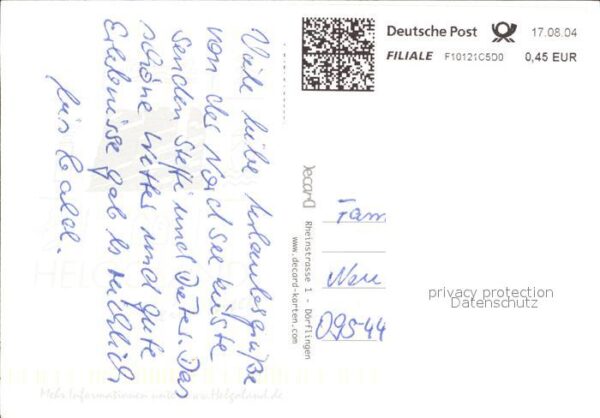 Viele liebe Urlaubsgrüße
von der Nordseeküste
senden Steffi und Dieter. Das
schöne Wetter und gute
Erlebnisse gab es reichlich
bis bald.
Deutsche Post 17.08.04
FILIALE F10121C5D0 0,45 EUR
decard
Rheinstrasse 1 - Dörflingen
www.decard-karten.com
Fam
09544
privacy protection
Datenschutz
HELGOLAND
Mehr Informationen unter www.Helgoland.de